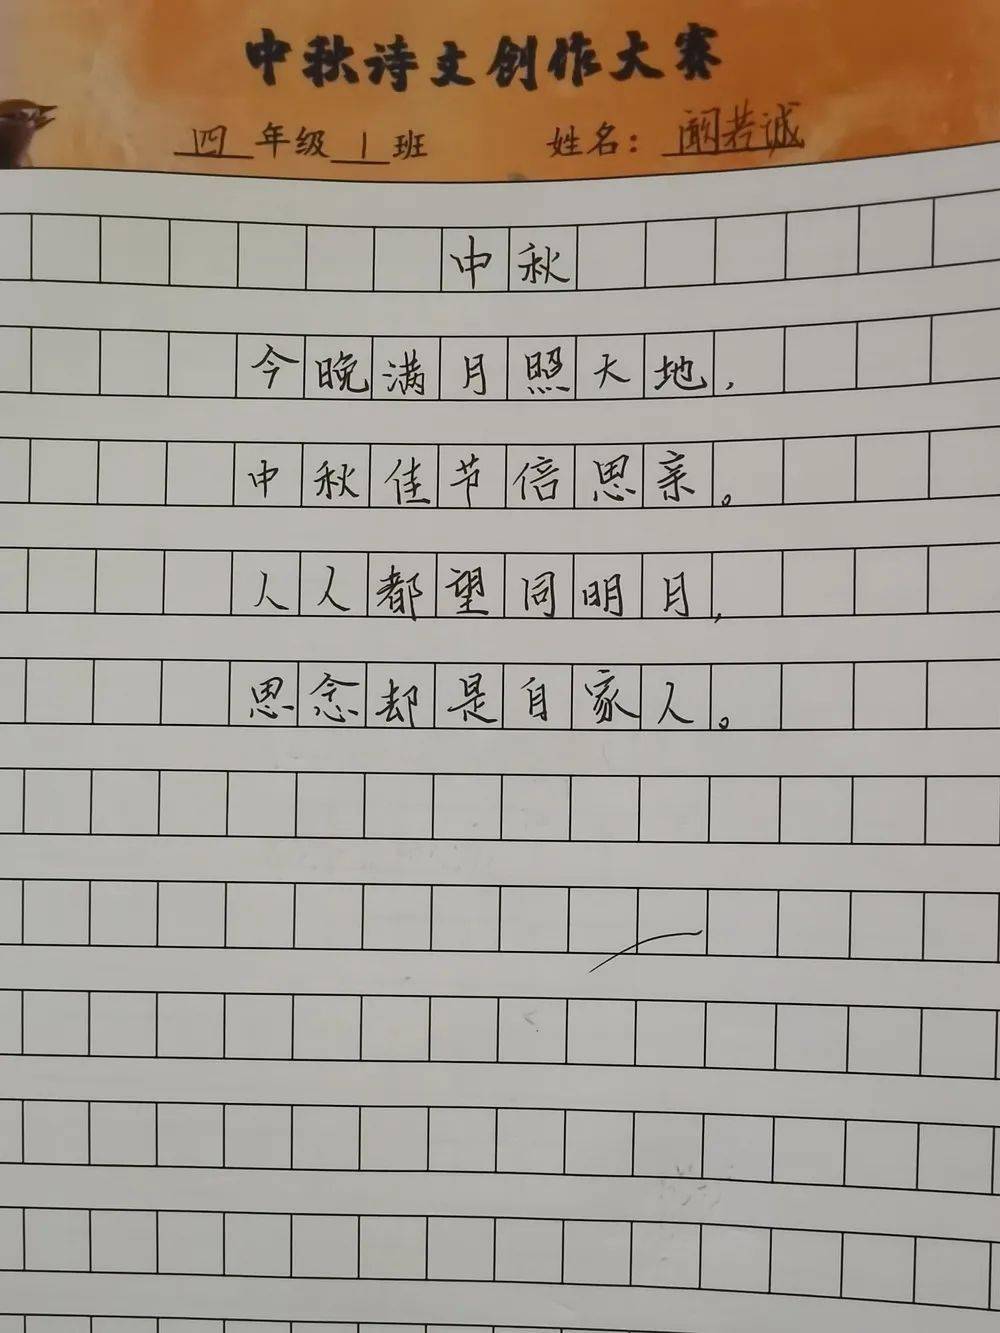 中秋诗文创作大赛
四年级1班 姓名：阚若诚
中秋
今晚满月照大地，
中秋佳节倍思亲。
人人都望同明月，
思念却是自家人。